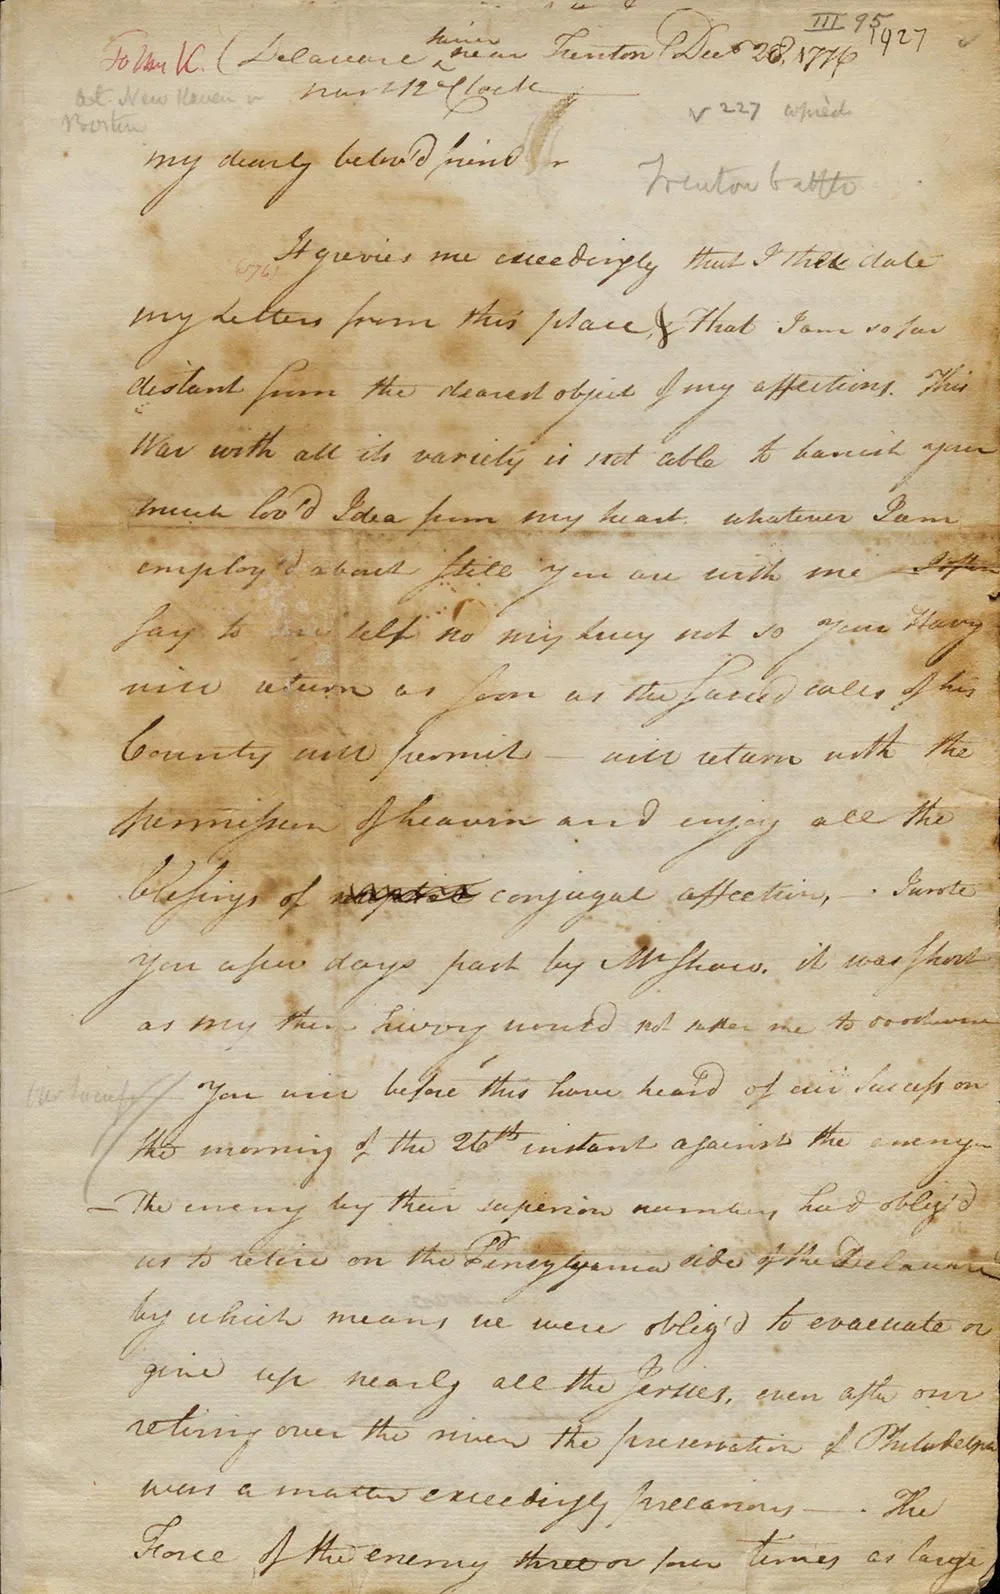 III 95
1927
To Mrs K. (Delaware river near Trenton Decr 28, 1776
near 12 oClock
at New Haven or
Boston
227 copied
my dearly belov'd friend
Trenton battle
It grevies me exceedingly that I thus date
(1776)
my Letters from this place, & that I am so far
distant from the dearest object of my affections. This
War with all its variety is not able to banish your
much lov'd Idea from my heart. whatever I am
employ'd about still you are with me I often
say to my self no my Lucy not so your Harry
will return as soon as the sacred calls of his
Country will permit — will return with the
permission of heaven and enjoy all the
blessings of nuptial conjugal affection, — I wrote
you a few days past by Mr Shaw. it was short
as my then hurry would not suffer me to
our success
You will before this have heard of our success on
the morning of the 26th instant against the enemy
— The enemy by their superior numbers had oblig'd
us to retire on the Pensylvania side of the Delaware
by which means we were oblig'd to evacuate or
give up nearly all the Jersies, even after our
retiring over the river the preservation of Philadelphia
was a matter exceedingly precarious — . The
Force of the enemy three or four times as large